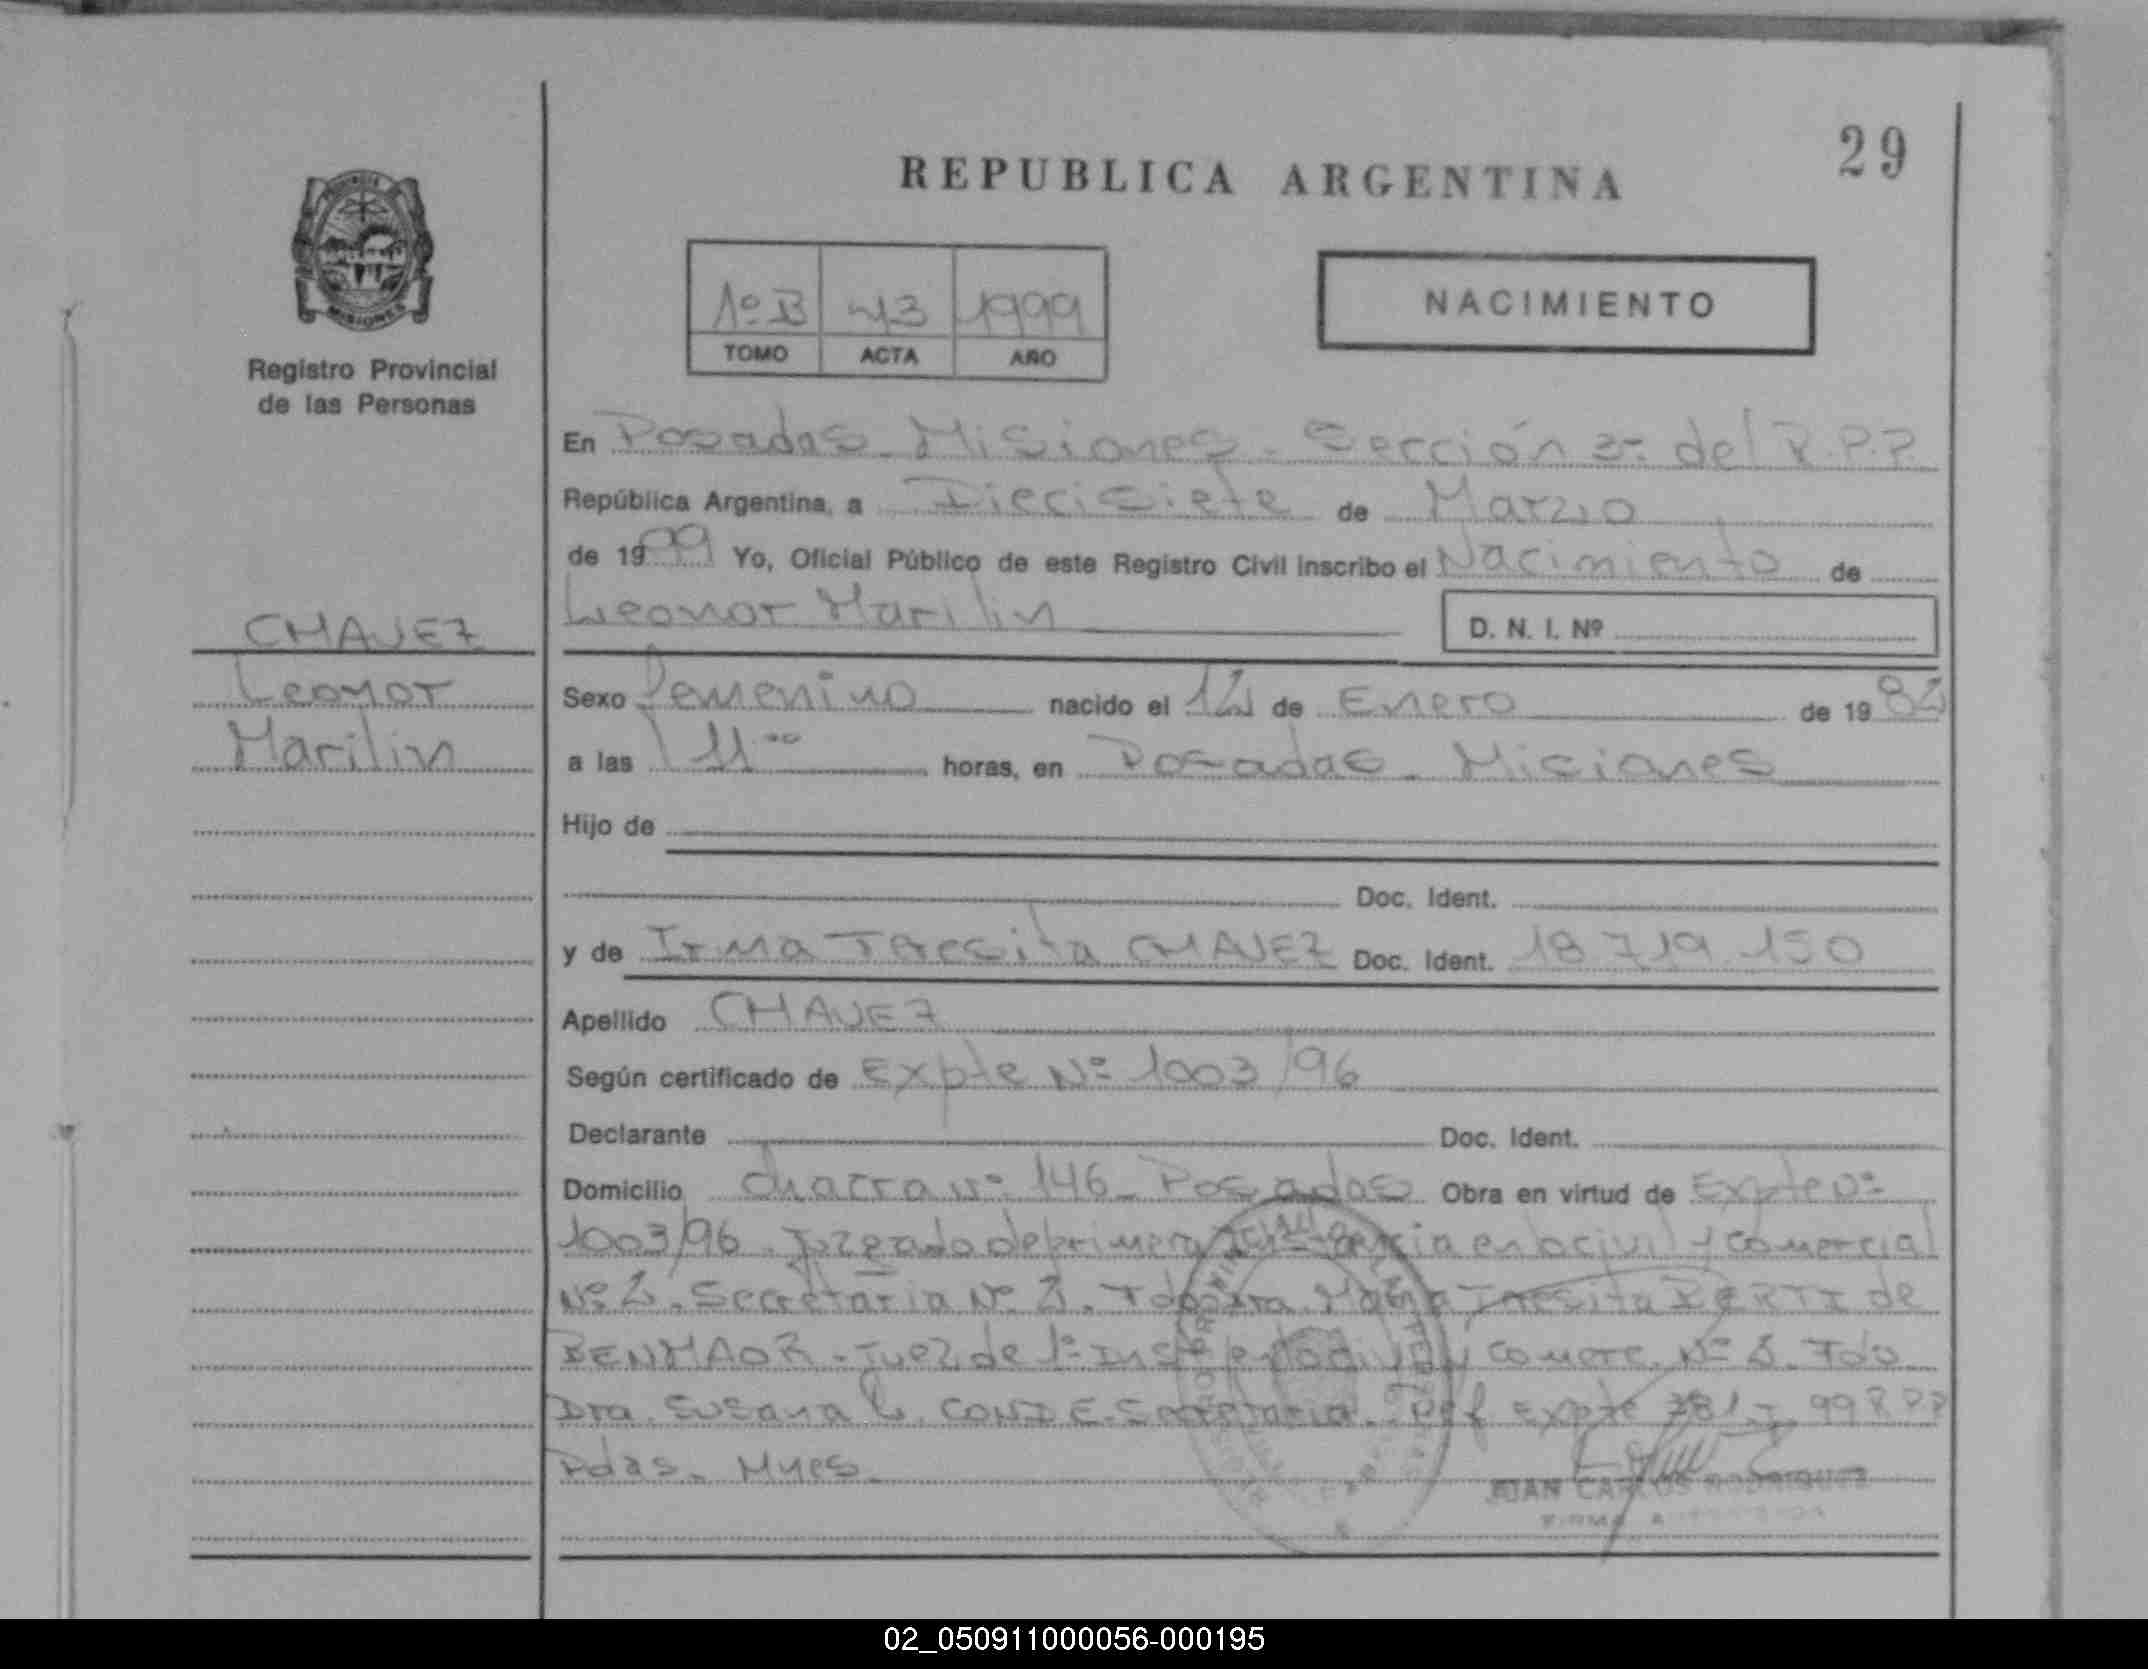 29
REPUBLICA ARGENTINA
MISIONES
Registro Provincial
de las Personas
1º B 43 1999
TOMO ACTA AÑO
NACIMIENTO
En Posadas - Misiones - Sección 2º del R.P.P.
República Argentina, a Diecisiete de Marzo
de 1999 Yo, Oficial Público de este Registro Civil inscribo el Nacimiento de
Leonor Marilin
D. N. I. Nº
CHAVEZ
Leonor
Marilin
Sexo femenino nacido el 12 de Enero de 1982
a las 11ºº horas, en Posadas - Misiones
Hijo de
Doc. Ident.
y de Irma Teresita CHAVEZ Doc. Ident. 18.719.150
Apellido CHAVEZ
Según certificado de Expte Nº 1003/96
Declarante Doc. Ident.
Domicilio chacra Nº 146 - Posadas Obra en virtud de Expte Nº
1003/96. Juzgado de primera Instancia en lo civil y comercial
Nº 2. Secretaria Nº 2. Fdo Dra. Maria Teresita BERTI de
BENMAOR - Juez de 1º Inst en lo civil y comerc. Nº 2. Fdo
Dra. Susana L. CONDE. Secretaria. Ref Expte 381 99 RPP
Pdas. Mnes.
JUAN CARLOS RODRIGUEZ
FIRMA A
02_050911000056-000195